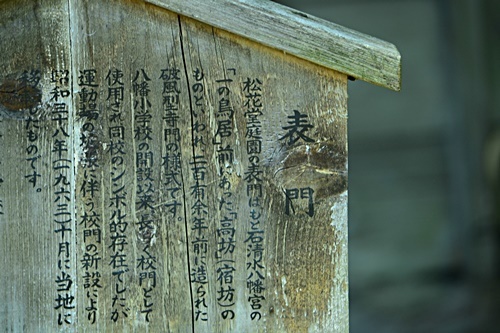 表門
松花堂庭園の表門はもと石清水八幡宮の
「一の鳥居」前にあった「高坊」（宿坊）の
ものといわれ、二百有余年前に造られた
破風型奇門の様式です。
八幡小学校の開設以来、長らく校門として
使用され同校のシンボル的存在でしたが
運動場の拡張に伴う校門の新設により
昭和三十八年（一九六三）十月に当地に
移したものです。